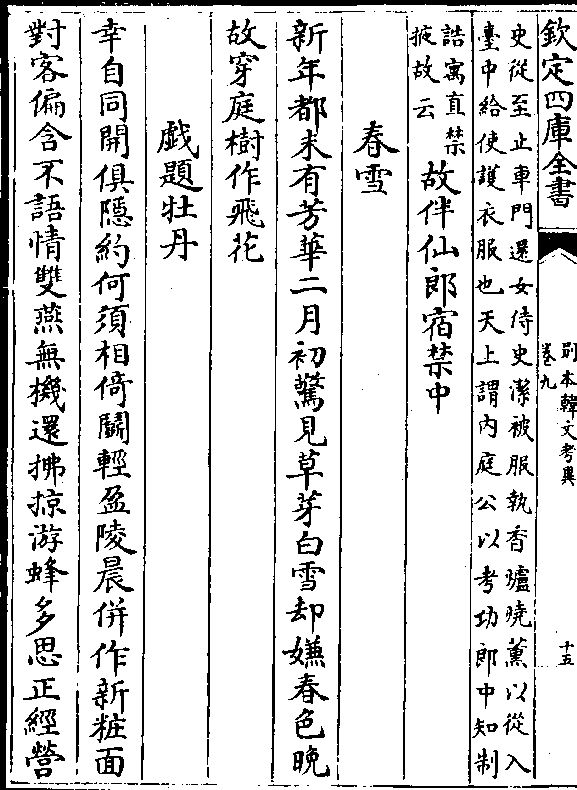 欽定四庫全書
別本韓文考異
卷九
十五
史從至止車門還女侍史潔被服執香爐曉薰以從入
臺中給使護衣服也天上謂内庭公以考功郎中知制
誥寓直禁
掖故云
故伴仙郎宿禁中
春雪
新年都未有芳華二月初驚見草芽白雪却嫌春色晚
故穿庭樹作飛花
戲題牡丹
幸自同開俱隱約何須相倚鬭輕盈陵晨併作新粧面
對客偏含不語情雙燕無機還拂掠游蜂多思正經營